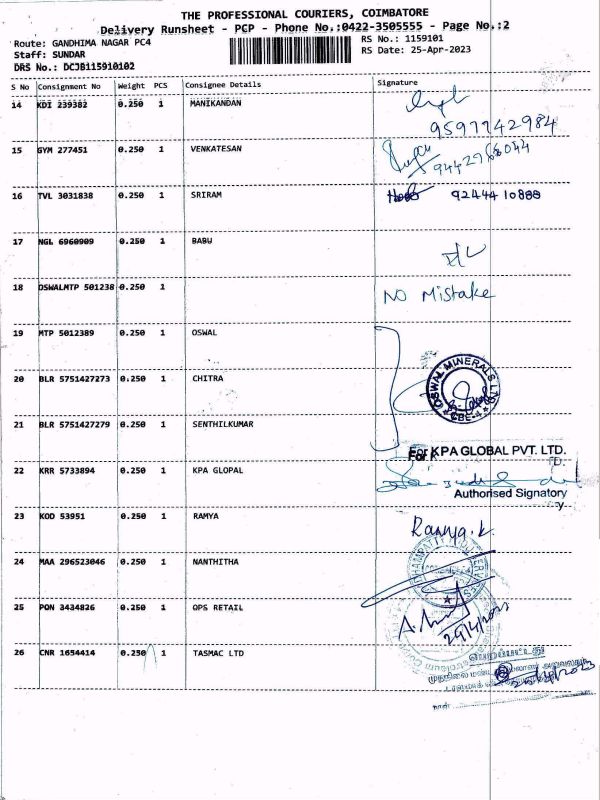 THE PROFESSIONAL COURIERS, COIMBATORE
Delivery Runsheet - PCP - Phone No.:0422-3505555 - Page No.:2
Route: GANDHIMA NAGAR PC4 RS No.: 1159101
Staff: SUNDAR RS Date: 25-Apr-2023
DRS No.: DCJB115910102
S No Consignment No Weight PCS Consignee Details Signature
14 KDI 239382 0.250 1 MANIKANDAN
9597742984
15 GYM 277451 0.250 1 VENKATESAN
16 TVL 3031838 0.250 1 SRIRAM 92444 10888
17 NGL 6960909 0.250 1 BABU
18 OSWALMTP 501238 0.250 1 NO Mistake
19 MTP 5012389 0.250 1 OSWAL
20 BLR 5751427273 0.250 1 CHITRA
OSWAL MINERALS LTD
CBE-4
21 BLR 5751427279 0.250 1 SENTHILKUMAR
For KPA GLOBAL PVT. LTD.
22 KRR 5733894 0.250 1 KPA GLOPAL
Authorised Signatory
23 KOD 53951 0.250 1 RAMYA Ramya.k
24 MAA 296523046 0.250 1 NANTHITHA
25 PON 3434826 0.250 1 OPS RETAIL
26 CNR 1654414 0.250 1 TASMAC LTD